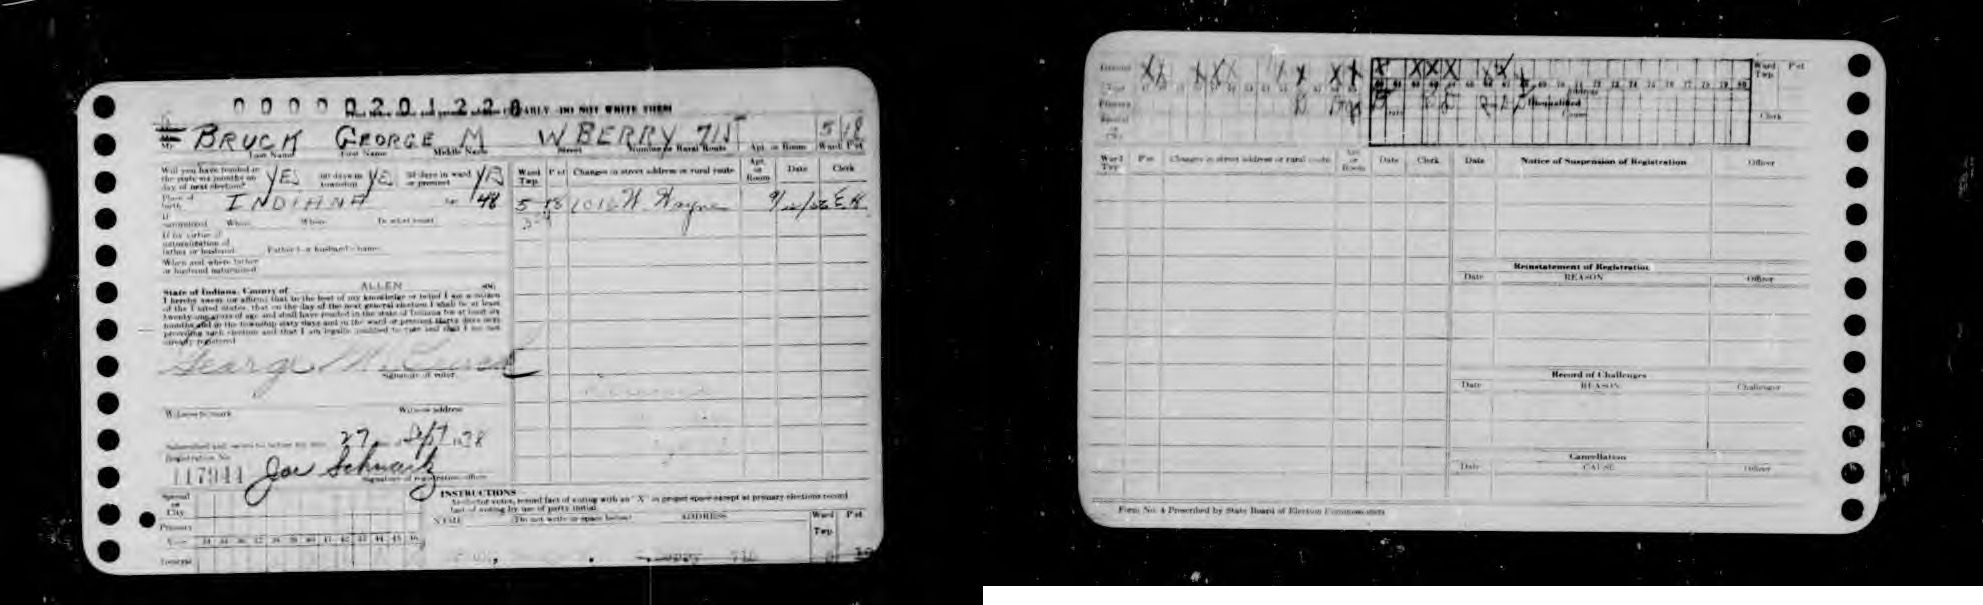 0000020122
EARLY - DO NOT WRITE THERE
BRUCK GEORGE M W BERRY 715 5 18
Mr. Last Name First Name Middle Name Street Number or Rural Route Apt. or Room Ward Pct
Will you have resided in the state six months on day of next election? YES 60 days in township YES 30 days in ward or precinct YES
Place of birth INDIANA Age 48
If naturalized When Where To what court
If by virtue of naturalization of father or husband Father's or husband's name
When and where father or husband naturalized
State of Indiana, County of ALLEN ss:
I hereby swear (or affirm) that to the best of my knowledge or belief I am a citizen
of the United States, that on the day of the next general election I shall be at least
twenty-one years of age and shall have resided in the state of Indiana for at least six
months and in the township sixty days and in the ward or precinct thirty days next
preceding such election and that I am legally qualified to vote and that I am not
already registered
George M. Bruck
Signature of voter
Witness to mark Witness address
Subscribed and sworn to before me this 27 day of Sept
Registration No.
117944 Joe Schwartz
Signature of registration officer
Special or City
Primary
Year 34 35 36 37 38 39 40 41 42 43 44 45 46
General
Ward Twp. Pct Changes in street address or rural route Apt. or Room Date Clerk
5 18 1016 W. Wayne E.K.
INSTRUCTIONS
As elector votes, record fact of voting with an "X" in proper space except at primary elections record
fact of voting by use of party initial
NAME (Do not write in space below) ADDRESS Ward Twp. Pct
General X X X X X X X X X X X X X X X Ward Twp. Pct
Year 60 61 62 63 64 65 66 67 68 69 70 71 72 73 74 75 76 77 78 79 80
Primary
Special
Disqualified
Date Cause Clerk
Ward Twp. Pct Changes in street address or rural route Apt. or Room Date Clerk Date Notice of Suspension of Registration Officer
Reinstatement of Registration
Date REASON Officer
Record of Challenges
Date REASON Challenger
Cancellation
Date CAUSE Officer
Form No. 4 Prescribed by State Board of Election Commissioners